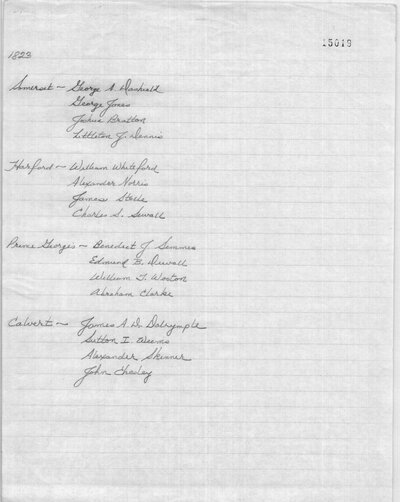 15019
1823
Somerset ~ George A. Dashield
George Jones
Joshua Bratton
Littleton J. Dennis
Harford ~ William Whiteford
Alexander Norris
James Steele
Charles S. Sewall
Prince Georges ~ Benedict J. Semmes
Edmund B. Duvall
William T. Wooton
Abraham Clarke
Calvert ~ James A. D. Dalrymple
Sutton I. Weems
Alexander Skinner
John